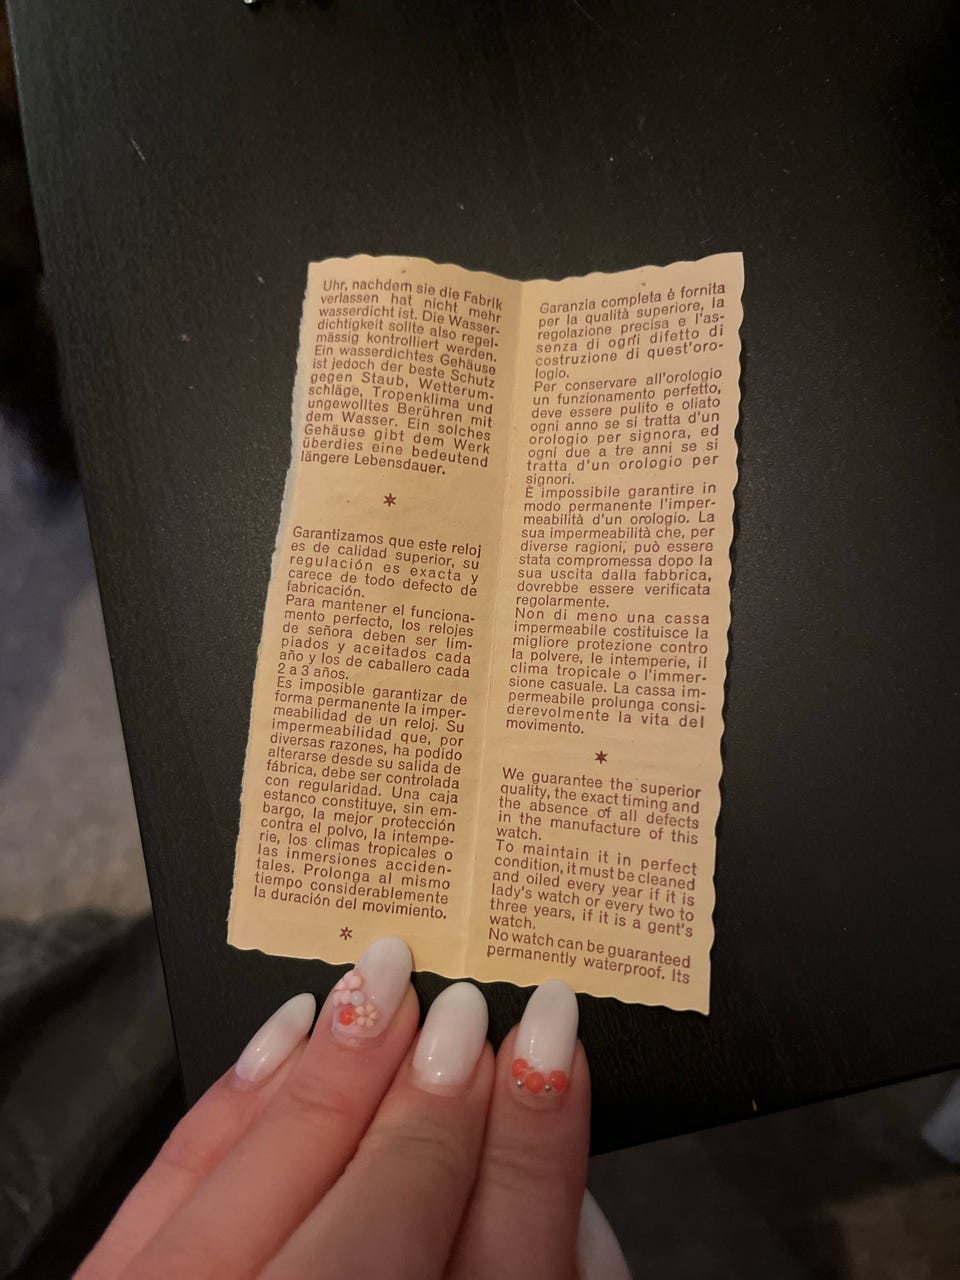 Uhr, nachdem sie die Fabrik
verlassen hat nicht mehr
wasserdicht ist. Die Wasser-
dichtigkeit sollte also regel-
mässig kontrolliert werden.
Ein wasserdichtes Gehäuse
ist jedoch der beste Schutz
gegen Staub, Wetterum-
schläge, Tropenklima und
ungewolltes Berühren mit
dem Wasser. Ein solches
Gehäuse gibt dem Werk
überdies eine bedeutend
längere Lebensdauer.
Garantizamos que este reloj
es de calidad superior, su
regulación es exacta y
carece de todo defecto de
fabricación.
Para mantener el funciona-
mento perfecto, los relojes
de señora deben ser lim-
piados y aceitados cada
año y los de caballero cada
2 a 3 años.
Es imposible garantizar de
forma permanente la imper-
meabilidad de un reloj. Su
impermeabilidad que, por
diversas razones, ha podido
alterarse desde su salida de
fábrica, debe ser controlada
con regularidad. Una caja
estanco constituye, sin em-
bargo, la mejor protección
contra el polvo, la intempe-
rie, los climas tropicales o
las inmersiones acciden-
tales. Prolonga al mismo
tiempo considerablemente
la duración del movimiento.
Garanzia completa è fornita
per la qualità superiore, la
regolazione precisa e l'as-
senza di ogni difetto di
costruzione di quest'oro-
logio.
Per conservare all'orologio
un funzionamento perfetto,
deve essere pulito e oliato
ogni anno se si tratta d'un
orologio per signora, ed
ogni due a tre anni se si
tratta d'un orologio per
signori.
È impossibile garantire in
modo permanente l'imper-
meabilità d'un orologio. La
sua impermeabilità che, per
diverse ragioni, può essere
stata compromessa dopo la
sua uscita dalla fabbrica,
dovrebbe essere verificata
regolarmente.
Non di meno una cassa
impermeabile costituisce la
migliore protezione contro
la polvere, le intemperie, il
clima tropicale o l'immer-
sione casuale. La cassa im-
permeabile prolunga consi-
derevolmente la vita del
movimento.
We guarantee the superior
quality, the exact timing and
the absence of all defects
in the manufacture of this
watch.
To maintain it in perfect
condition, it must be cleaned
and oiled every year if it is
lady's watch or every two to
three years, if it is a gent's
watch.
No watch can be guaranteed
permanently waterproof. Its